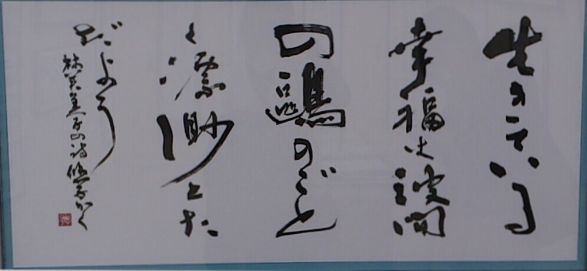 生きている
幸福は波間
の鷗のごと
く漂渺とた
だよう
林芙美子の詩